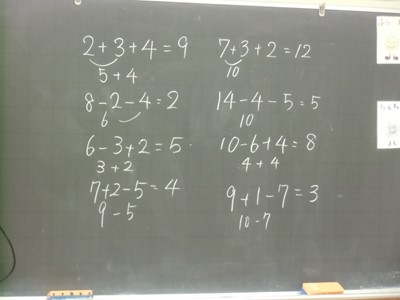 2+3+4=9
5+4
8-2-4=2
6
6-3+2=5
3+2
7+2-5=4
9-5
7+3+2=12
10
14-4-5=5
10
10-6+4=8
4+4
9+1-7=3
10-7